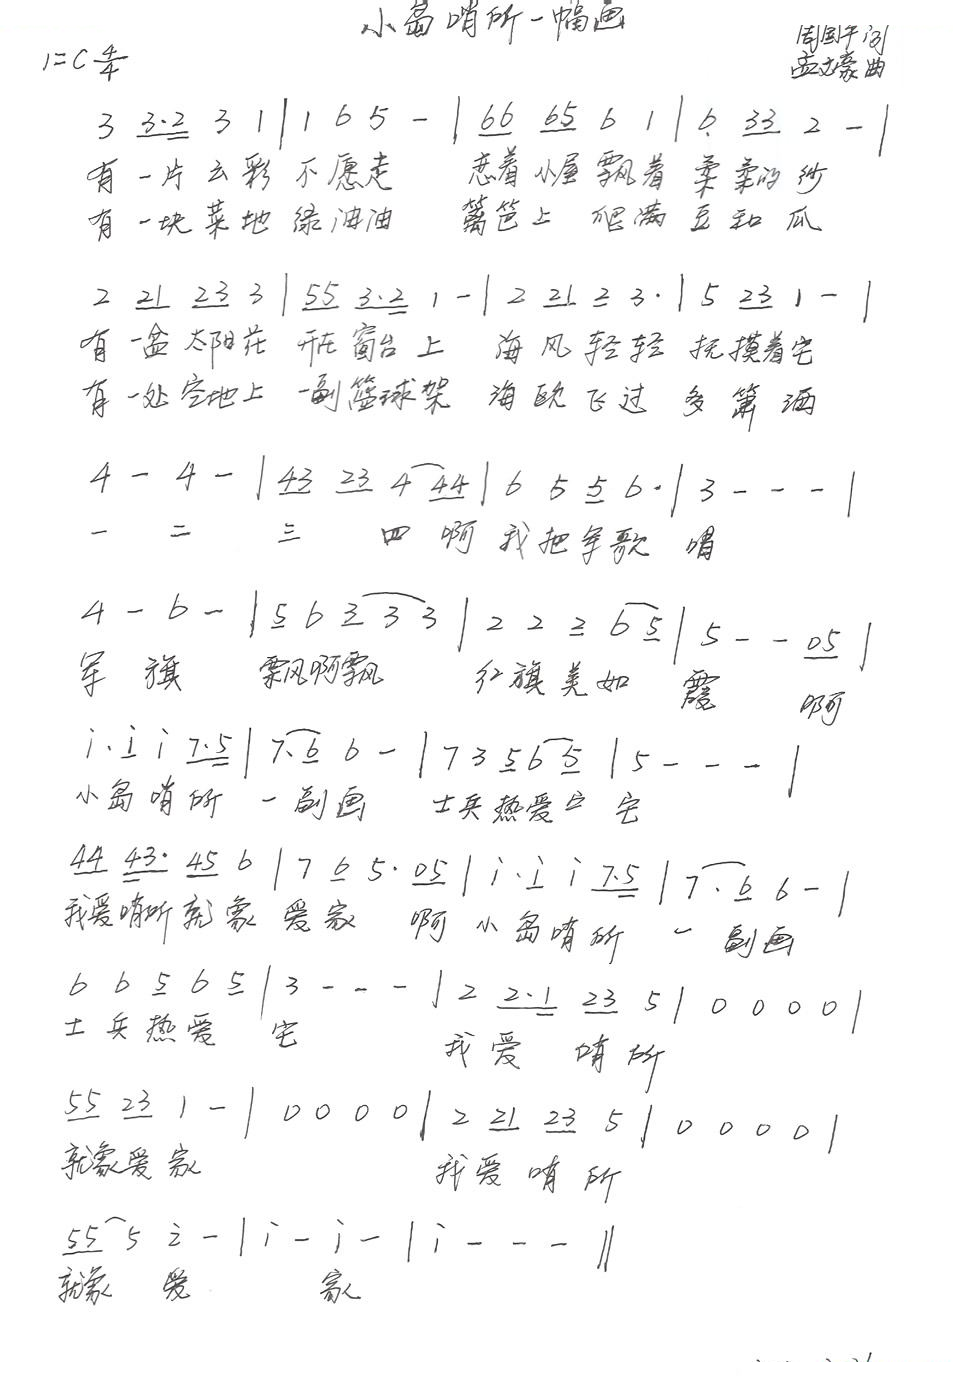 小岛哨所一幅画
1=C 4/4
周国平 词
孟文豪 曲
3 3·2 3 1 | 1 6 5 - | 66 65 6 1 | 6 33 2 - |
有一片云彩不愿走 恋着小屋飘着柔柔的纱
有一块菜地绿油油 篱笆上爬满豆和瓜
2 21 23 3 | 55 3·2 1 - | 2 21 2 3· | 5 23 1 - |
有一盆太阳花开在窗台上 海风轻轻抚摸着它
有一处空地上一副篮球架 海鸥飞过多箫洒
4 - 4 - | 43 23 4 44 | 6 5 5 6· | 3 - - - |
一 二 三 四 啊 我把军歌唱
4 - 6 - | 5 6 3 3 3 | 2 2 2 6 5 | 5 - - 05 |
军旗 飘风啊飘 红旗美如霞 啊
i· i i 7·5 | 7·6 6 - | 7 3 5 6 5 | 5 - - - |
小岛哨所一副画 士兵热爱它 它
44 43· 45 6 | 7 6 5· 05 | i· i i 7·5 | 7·6 6 - |
我爱哨所就象爱家 啊 小岛哨所一副画
6 6 5 6 5 | 3 - - - | 2 2·1 23 5 | 0 0 0 0 |
士兵热爱它 我爱哨所
55 23 1 - | 0 0 0 0 | 2 21 23 5 | 0 0 0 0 |
就象爱家 我爱哨所
55 5 2 - | i - i - | i - - - ||
就象爱家